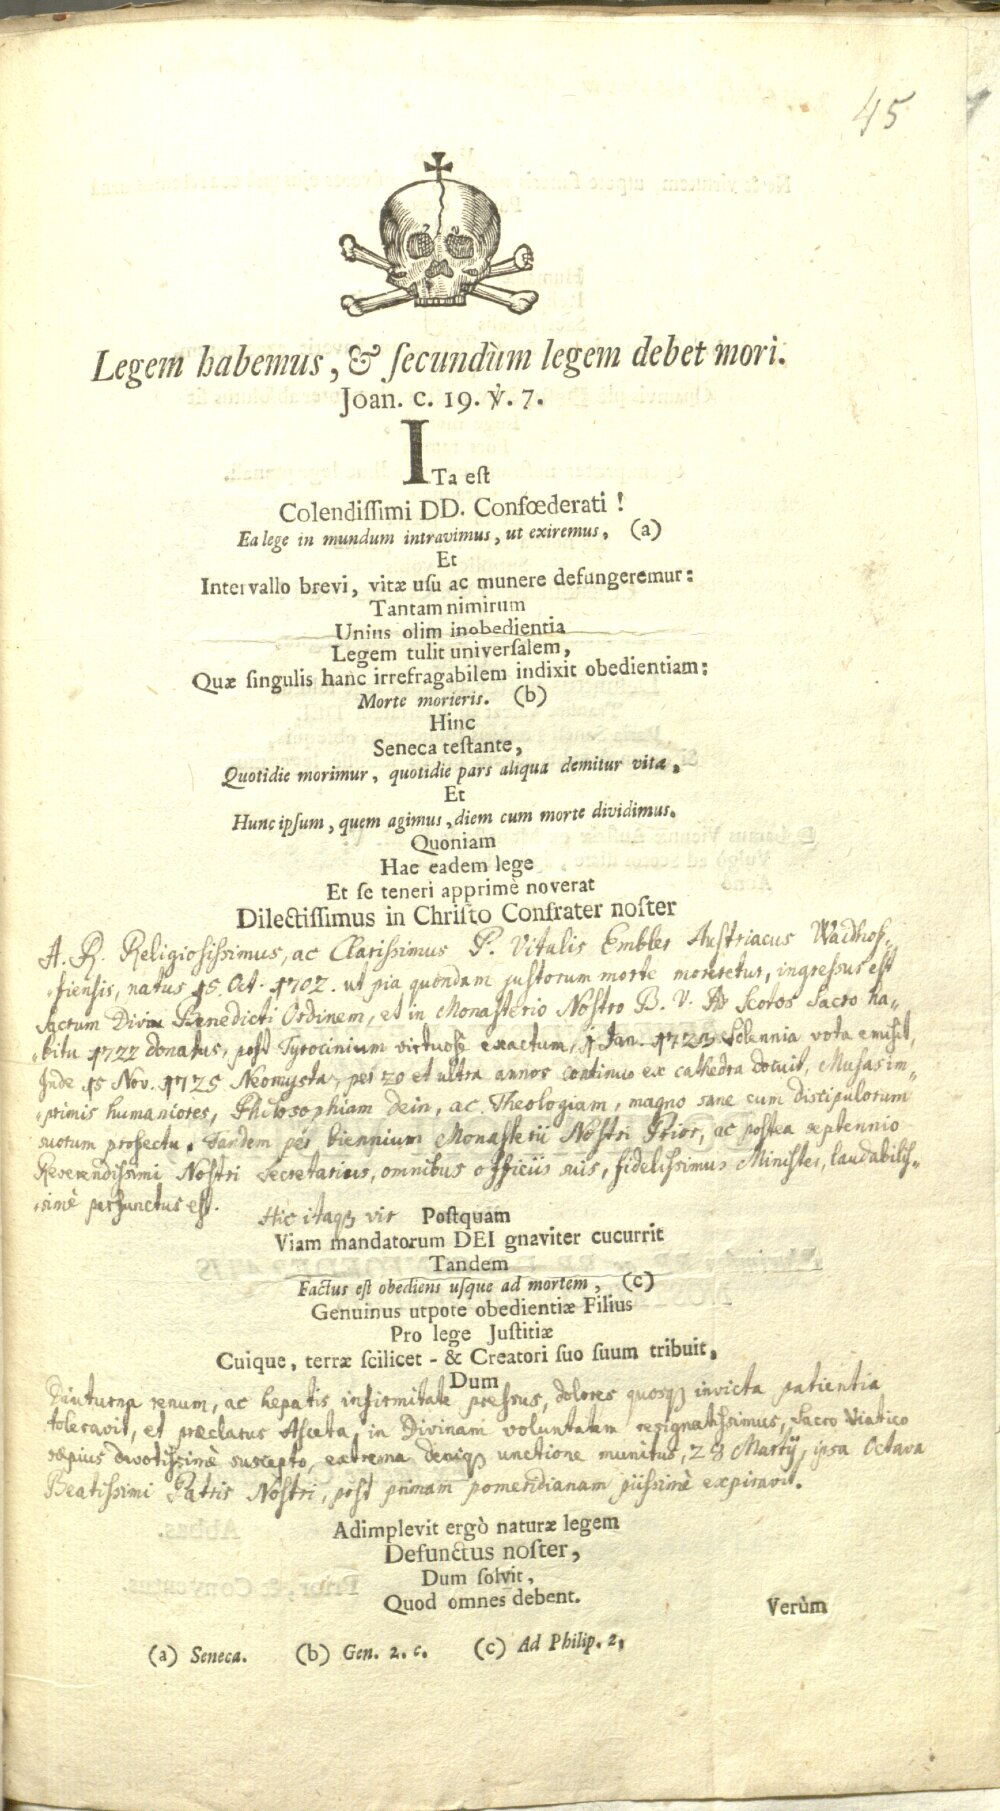 45
Legem habemus, & ſecundùm legem debet mori.
Joan. c. 19. ℣. 7.
ITa eſt
Colendiſſimi DD. Confœderati !
Ea lege in mundum intravimus, ut exiremus, (a)
Et
Intervallo brevi, vitæ uſu ac munere defungeremur:
Tantam nimirum
Unius olim inobedientia
Legem tulit univerſalem,
Quæ ſingulis hanc irrefragabilem indixit obedientiam:
Morte morieris. (b)
Hinc
Seneca teſtante,
Quotidie morimur, quotidie pars aliqua demitur vitæ,
Et
Hunc ipſum, quem agimus, diem cum morte dividimus.
Quoniam
Hac eadem lege
Et ſe teneri apprimè noverat
Dilectiſſimus in Chriſto Confrater noſter
A. R. Religiosissimus, ac Clarissimus P. Vitalis Embler Austriacus Waidhof-
fiensis, natus 15 Oct. 1702. ut pia quondam justorum morte moreretur, ingressus est
sacrum Divi Benedicti Ordinem, et in Monasterio Nostro B. V. Ad Scotos Sacro ha-
bitu 1722 donatus, post Tyrocinium virtuosè exactum, 1 Jan. 1723 Solennia vota emisit,
Inde 15 Nov. 1725 Neomysta, per 20 et ultra annos continuo ex cathedra docuit, Musas im-
primis humaniores, Philosophiam dein, ac Theologiam, magno sane cum discipulorum
suorum profectu. Tandem per biennium Monasterii Nostri Prior, ac postea septennio
Reverendissimi Nostri Secretarius, omnibus officiis suis, fidelissimus Minister, laudabilis-
simè perfunctus est.
Hic itaqꝫ vir Poſtquam
Viam mandatorum DEI gnaviter cucurrit
Tandem
Factus eſt obediens uſque ad mortem, (c)
Genuinus utpote obedientiæ Filius
Pro lege Juſtitiæ
Cuique, terræ ſcilicet - & Creatori ſuo ſuum tribuit.
Dum
Diuturna renum, ac hepatis infirmitate pressus, dolores quosqꝫ invicta patientia
toleravit, et præclarus Asceta, in Divinam voluntatem resignatissimus, Sacro Viatico
sæpius devotissimè suscepto, extrema deniqꝫ unctione munitus, 28 Martij, ipsa Octava
Beatissimi Patris Nostri, post primam pomeridianam piissimè expiravit.
Adimplevit ergò naturæ legem
Defunctus noſter,
Dum ſolvit,
Quod omnes debent.
Verùm
(a) Seneca. (b) Gen. 2. c. (c) Ad Philip. 2.